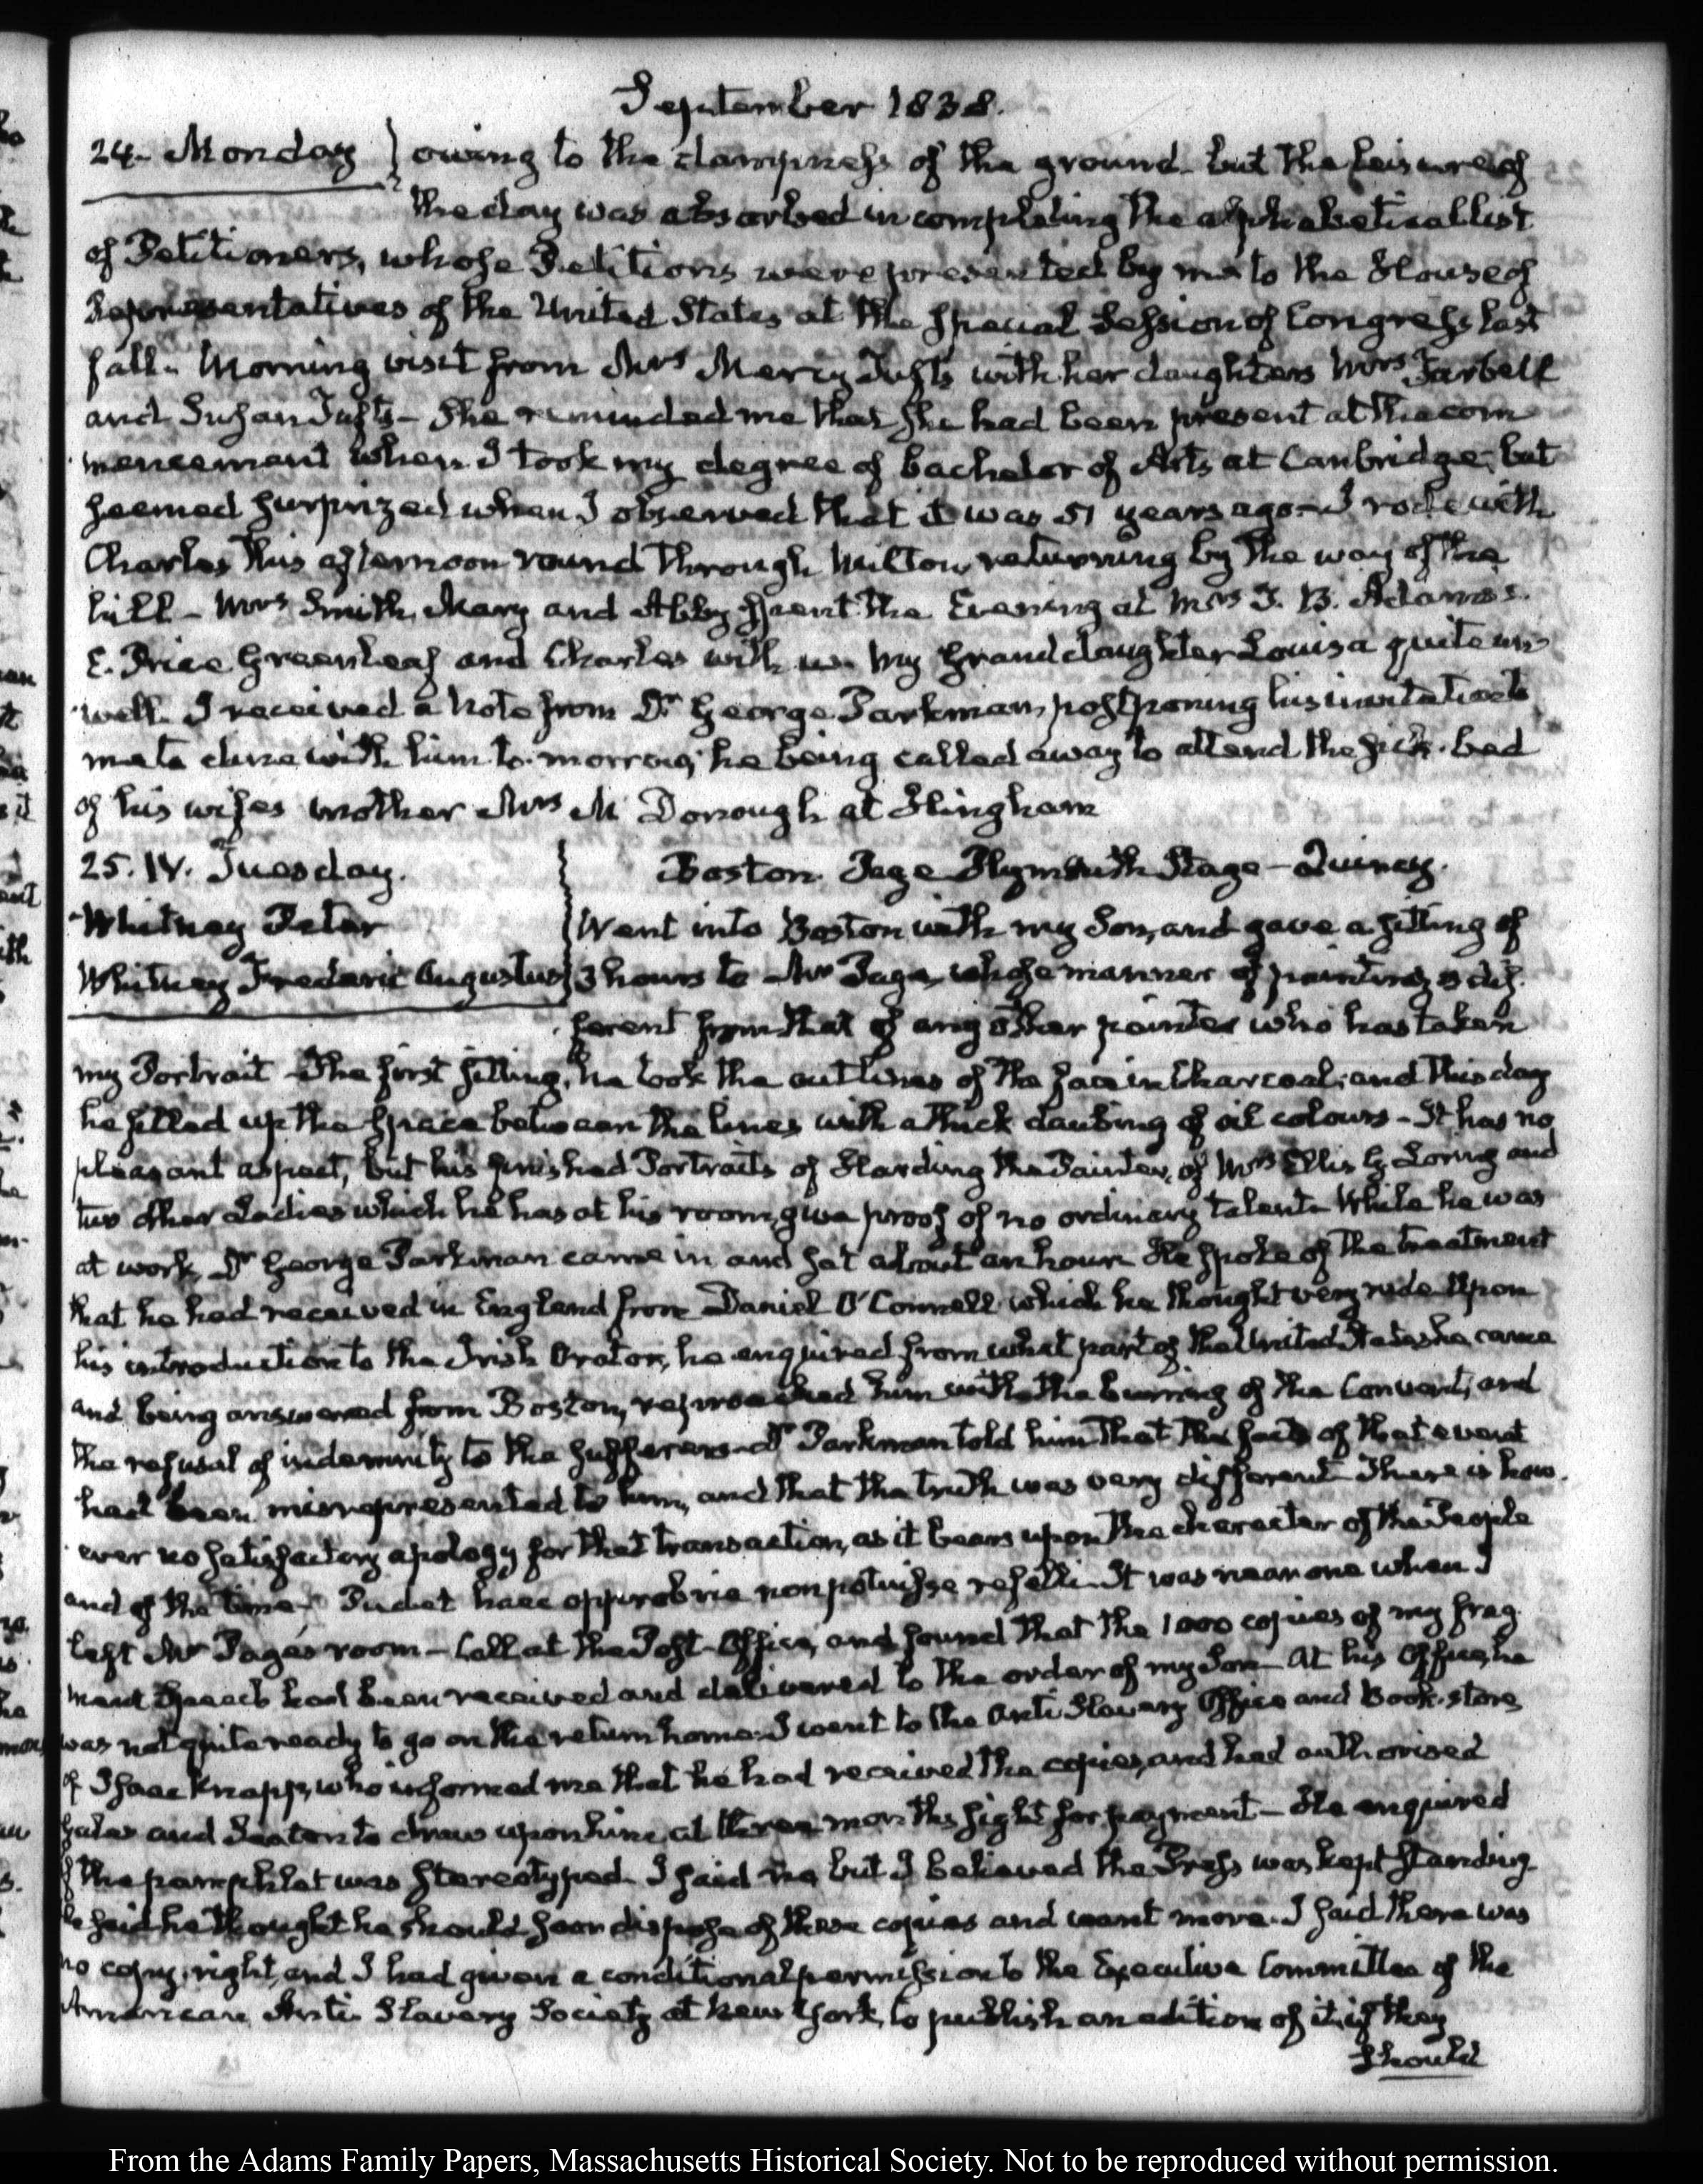 September 1838.
24. Monday } owing to the dampness of the ground. but the leisure of
the day was absorbed in completing the alphabetical list
of Petitioners, whose Petitions were presented by me to the House of
Representatives of the United States at the special Session of Congress last
fall. Morning visit from Mrs Mercy Tufts with her daughters Mrs Tarbell
and Susan Tufts— She reminded me that she had been present at the com
mencement when I took my degree of bachelor of Arts at Cambridge, but
seemed surprized when I observed that it was 51 years ago— I rode with
Charles this afternoon round through Milton, returning by the way of the
hill— Mrs Smith, Mary and Abby spent the Evening at Mrs T. B. Adams's.
E. Price Greenleaf and Charles with us. My Grand daughter Louisa quite un
well. I received a Note from Dr George Parkman, postponing his invitation to
me to dine with him to-morrow; he being called away to attend the sick-bed
of his wifes mother Mrs Mc Donough at Hingham
25. IV. Tuesday. Boston. Page Plymouth Stage— Quincy.
Whitney Peter Went into Boston with my Son, and gave a sitting of
Whitney Frederic Augustus 3 hours to Mr Page, whose manner of painting is dif
ferent from that of any other painter who has taken
my Portrait— The first sitting, he took the outlines of the face in charcoal; and this day
he filled up the space between the lines with a thick daubing of oil colours— It has no
pleasant aspect, but his finished Portraits of Harding the Painter, of Mrs Ellis G. Loring and
two other Ladies which he has at his room, give proof of no ordinary talent. While he was
at work, Dr George Parkman came in and sat about an hour. He spoke of the treatment
that he had received in England from Daniel O'Connell which he thought very rude. Upon
his introduction to the Irish Orator, he enquired from what part of the United States he came
and being answered from Boston, reproached him with the burning of the Convent, and
the refusal of indemnity to the sufferers— Dr Parkman told him that the facts of that event
had been misrepresented to him, and that the truth was very different. There is how-
ever no satisfactory apology for that transaction, as it bears upon the character of the People
and of the time— Pudet haec opprobria non potuisse refelli. It was near one when I
left Mr Page's room— Call at the Post-Office, and found that the 1000 copies of my frag
ment Speech had been received and delivered to the order of my Son— At his Office, he
was not quite ready to go on the return home. I went to the Anti Slavery Office and Book-store
of Isaac Knapp, who informed me that he had received the copies, and had authorised
Gales and Seaton to draw upon him at three months sight for payment— He enquired
if the pamphlet was stereotyped. I said no, but I believed the Press was kept standing
He said he thought he should soon dispose of these copies and want more. I said there was
no copy-right, and I had given a conditional permission to the Executive Committee of the
American Anti Slavery Society at New York, to publish an edition of it, if they
should
From the Adams Family Papers, Massachusetts Historical Society. Not to be reproduced without permission.